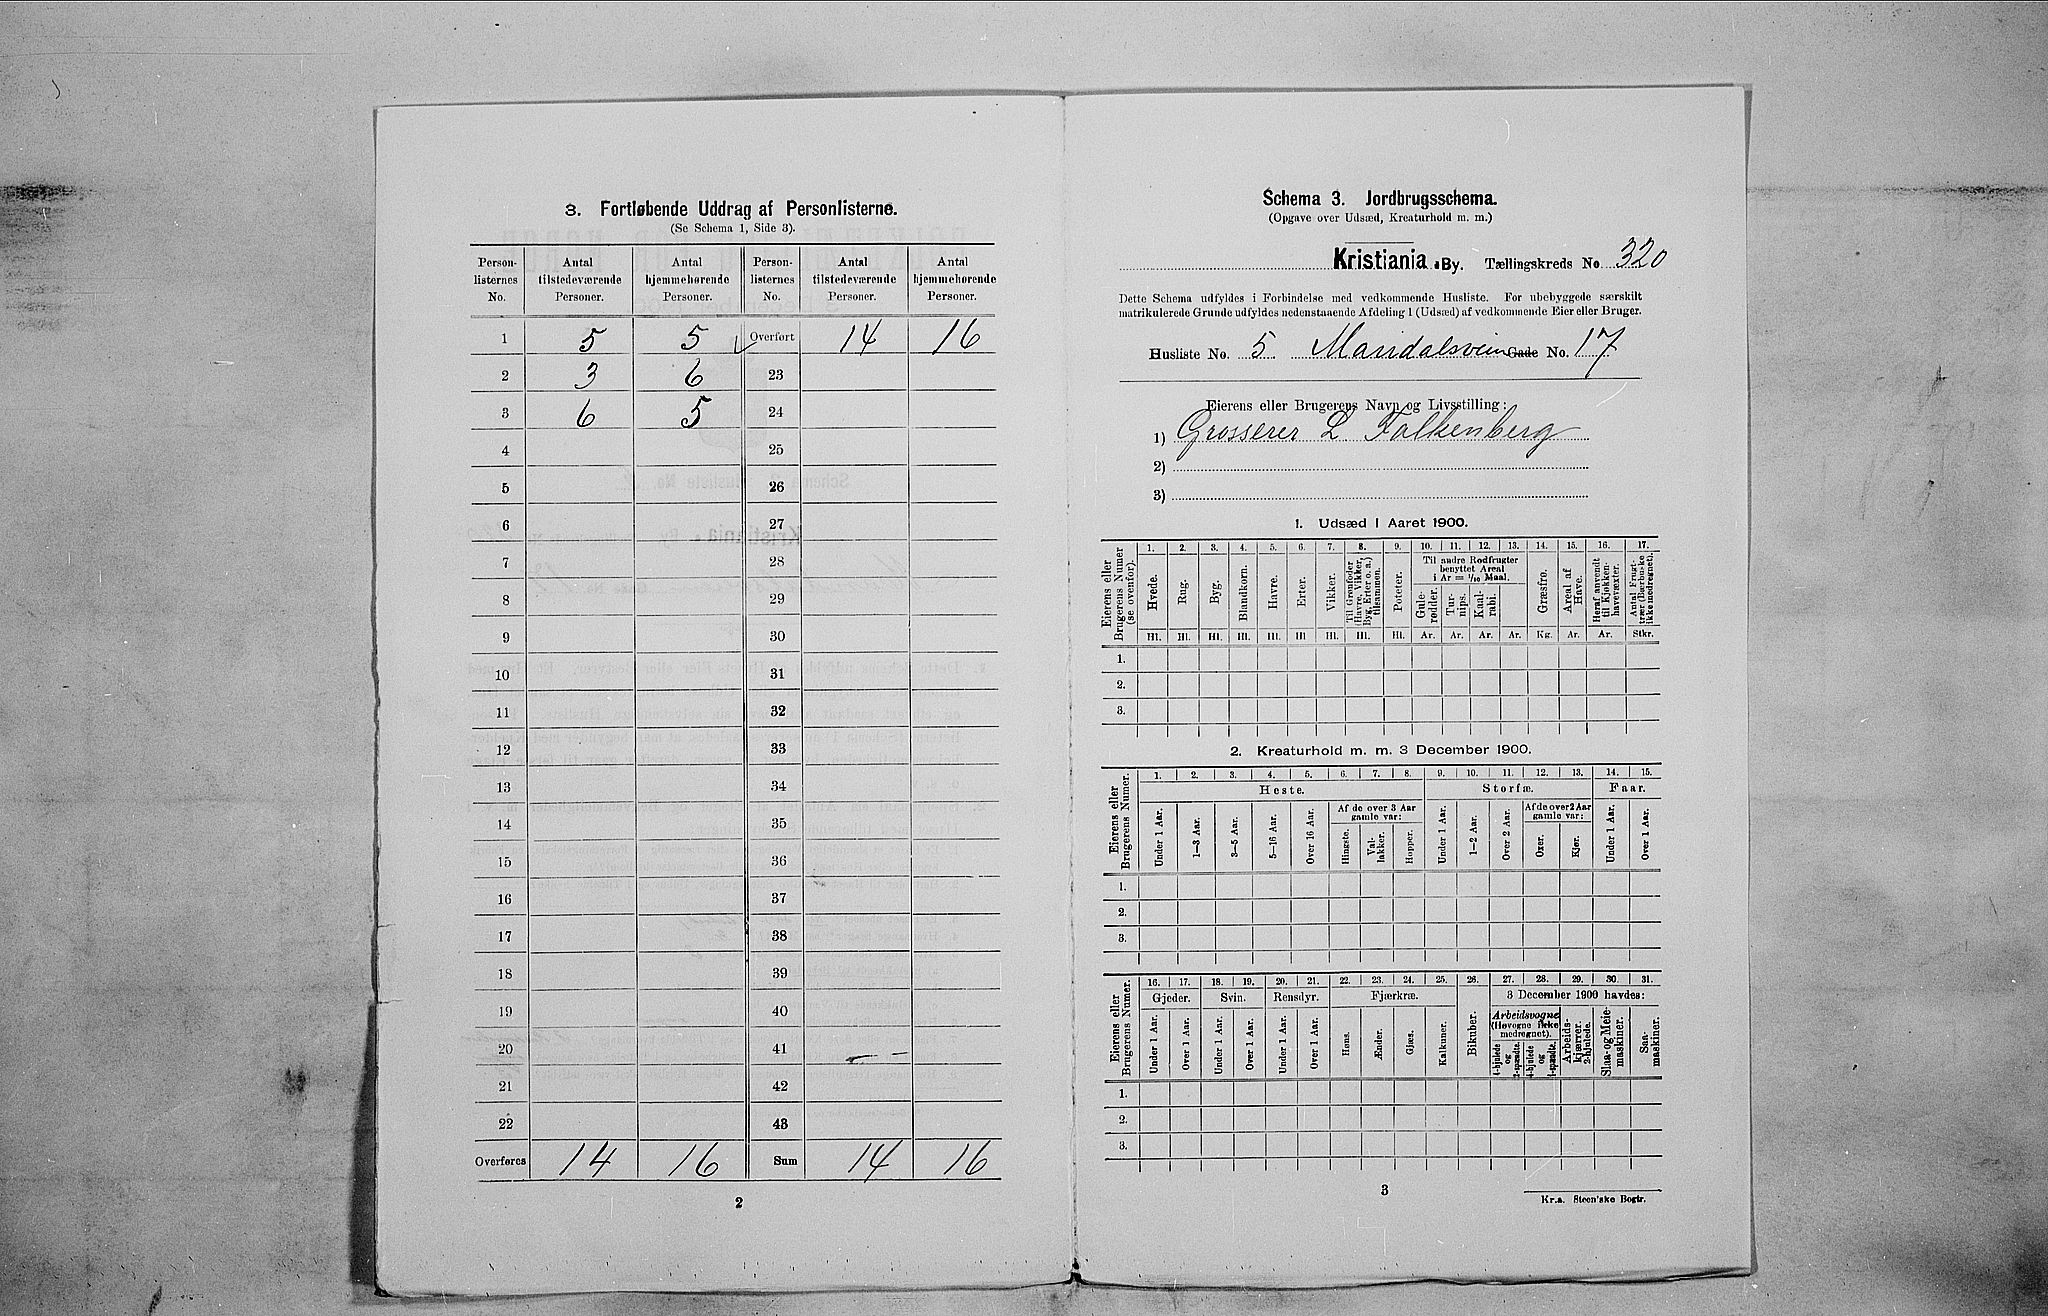 3. Fortløbende Uddrag af Personlisterne.
(Se Schema 1, Side 3).
Person-listernes No. Antal tilstedeværende Personer. Antal hjemmehørende Personer. Person-listernes No. Antal tilstedeværende Personer. Antal hjemmehørende Personer.
1 5 5 Overført 14 16
2 3 6 23
3 6 5 24
4 25
5 26
6 27
7 28
8 29
9 30
10 31
11 32
12 33
13 34
14 35
15 36
16 37
17 38
18 39
19 40
20 41
21 42
22 43
Overføres 14 16 Sum 14 16
2
Schema 3. Jordbrugsschema.
(Opgave over Udsæd, Kreaturhold m. m.)
Kristiania By. Tællingskreds No. 320
Dette Schema udfyldes i Forbindelse med vedkommende Husliste. For ubebyggede særskilt
matrikulerede Grunde udfyldes nedenstaaende Afdeling 1 (Udsæd) af vedkommende Eier eller Bruger.
Husliste No. 5 Maridalsvein Gade No. 17
Eierens eller Brugerens Navn og Livsstilling:
1) Grosserer L Falkenberg
2)
3)
1. Udsæd i Aaret 1900.
Eierens eller Brugerens Numer (se ovenfor).
1. 2. 3. 4. 5. 6. 7. 8. 9. 10. 11. 12. 13. 14. 15. 16. 17.
Til andre Rodfrugter benyttet Areal i Ar = 1/10 Maal.
Hvede. Rug. Byg. Blandkorn. Havre. Erter. Vikker. Til Grønfoder (Havre, Vikker, Byg, Erter o. a.) tilsammen. Poteter. Gule-rødder. Tur-nips. Kaal-rabi. Græsfrø. Areal af Have. Heraf anvendt til Kjøkken-havevæxter. Antal Frugt-trær (Bærbuske ikke medregnet).
Hl. Hl. Hl. Hl. Hl. Hl. Hl. Hl. Hl. Ar. Ar. Ar. Ar. Kg. Ar. Ar. Stkr.
1.
2.
3.
2. Kreaturhold m. m. 3 December 1900.
Eierens eller Brugerens Numer.
1. 2. 3. 4. 5. 6. 7. 8. 9. 10. 11. 12. 13. 14. 15.
Heste. Storfæ. Faar.
Af de over 3 Aar gamle var: Af de over 2 Aar gamle var:
Under 1 Aar. 1—3 Aar. 3—5 Aar. 5—16 Aar. Over 16 Aar. Hingste. Val-lakker. Hopper. Under 1 Aar. 1—2 Aar. Over 2 Aar. Oxer. Kjør. Under 1 Aar. Over 1 Aar.
1.
2.
3.
Eierens eller Brugerens Numer.
16. 17. 18. 19. 20. 21. 22. 23. 24. 25. 26. 27. 28. 29. 30. 31.
Gjeder. Svin. Rensdyr. Fjærkræ. Bikuber. 3 December 1900 havdes:
Arbeidsvogne (Høvogne ikke medregnet).
Under 1 Aar. Over 1 Aar. Under 1 Aar. Over 1 Aar. Under 1 Aar. Over 1 Aar. Høns. Ænder. Gjæs. Kalkuner. 4-hjulede og 2-spændte. 4-hjulede og 1-spændte. Arbeids-kjærrer. 2-hjulede. Slaa- og Meie-maskiner. Saa-maskiner.
1.
2.
3.
3
Kr.a. Steen'ske Bogtr.